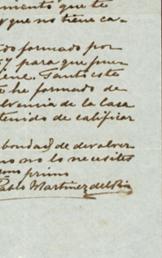 miento que te
que no tiene ca-
do formado por
57 para que pue
Tanto este
he formado de
de la Casa
tenido de calificar
bondad de devolver
no lo necesites
primo
Pablo Martinez del Rio